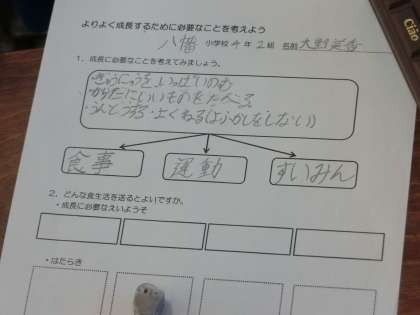 よりよく成長するために必要なことを考えよう
八幡 小学校 4年 2組 名前
1. 成長に必要なことを考えてみましょう。
ぎゅうにゅうを、いっぱいのむ
・からだにいいものをたべる
・うんどうする・よくねる(よふかしをしない)
食事 運動 すいみん
2. どんな食生活を送るとよいですか。
・成長に必要なえいようそ
・はたらき
Ciao